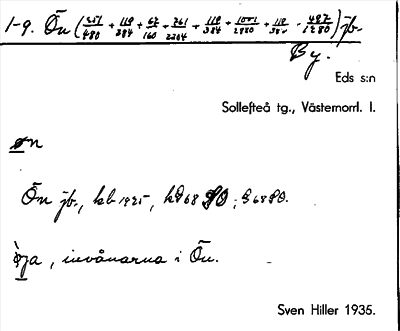 1-9. Ön (257/480 + 119/384 + 67/160 + 761/2304 + 119/384 + 1001/2880 + 119/384 - 487/1280) jb.
By.
Eds s:n
Sollefteå tg., Västernorrl. l.
øn
Ön jb., kb 1925,
øja, invånarna i Ön.
Sven Hiller 1935.